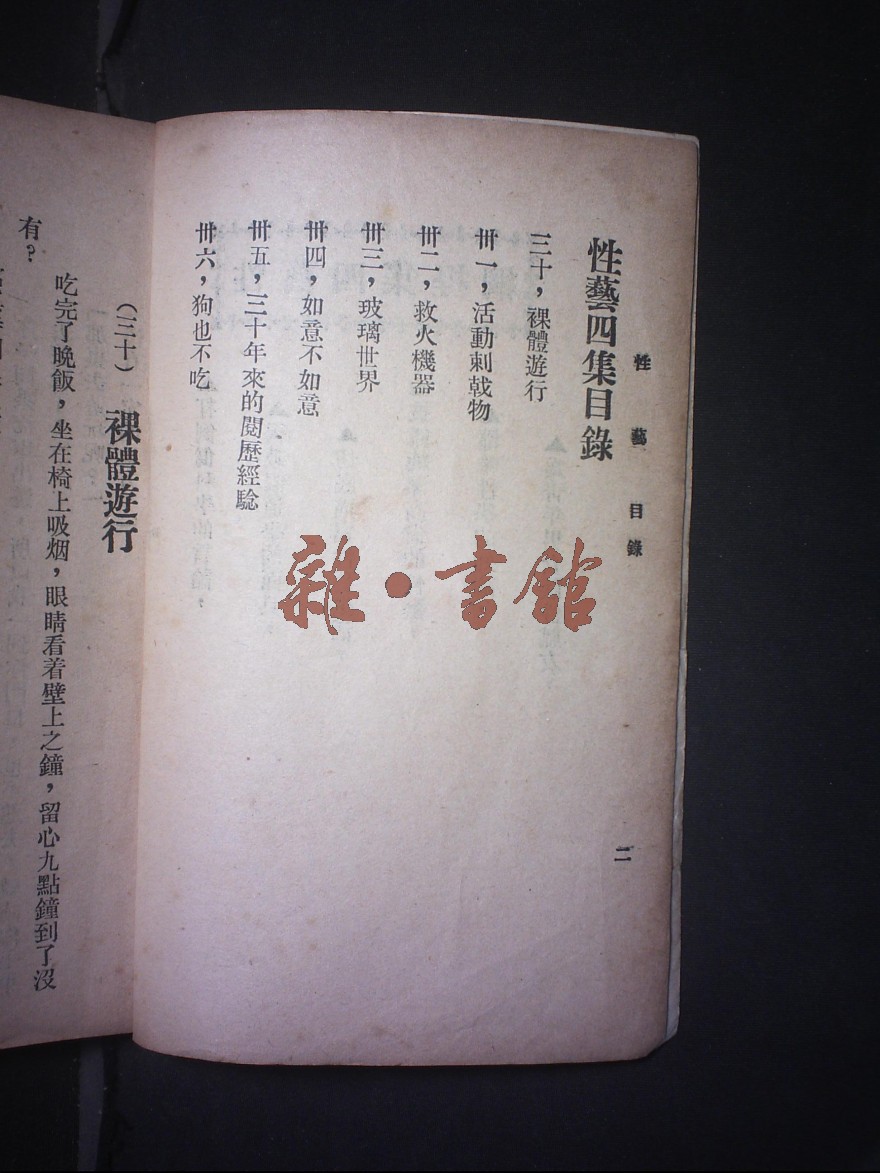 性藝 目錄 二
性藝四集目錄
三十，裸體遊行
卅一，活動刺戟物
卅二，救火機器
卅三，玻璃世界
卅四，如意不如意
卅五，三十年來的閱歷經騐
卅六，狗也不吃
雜·書館
（三十） 裸體遊行
吃完了晚飯，坐在椅上吸烟，眼睛看着壁上之鐘，留心九點鐘到了沒
有？